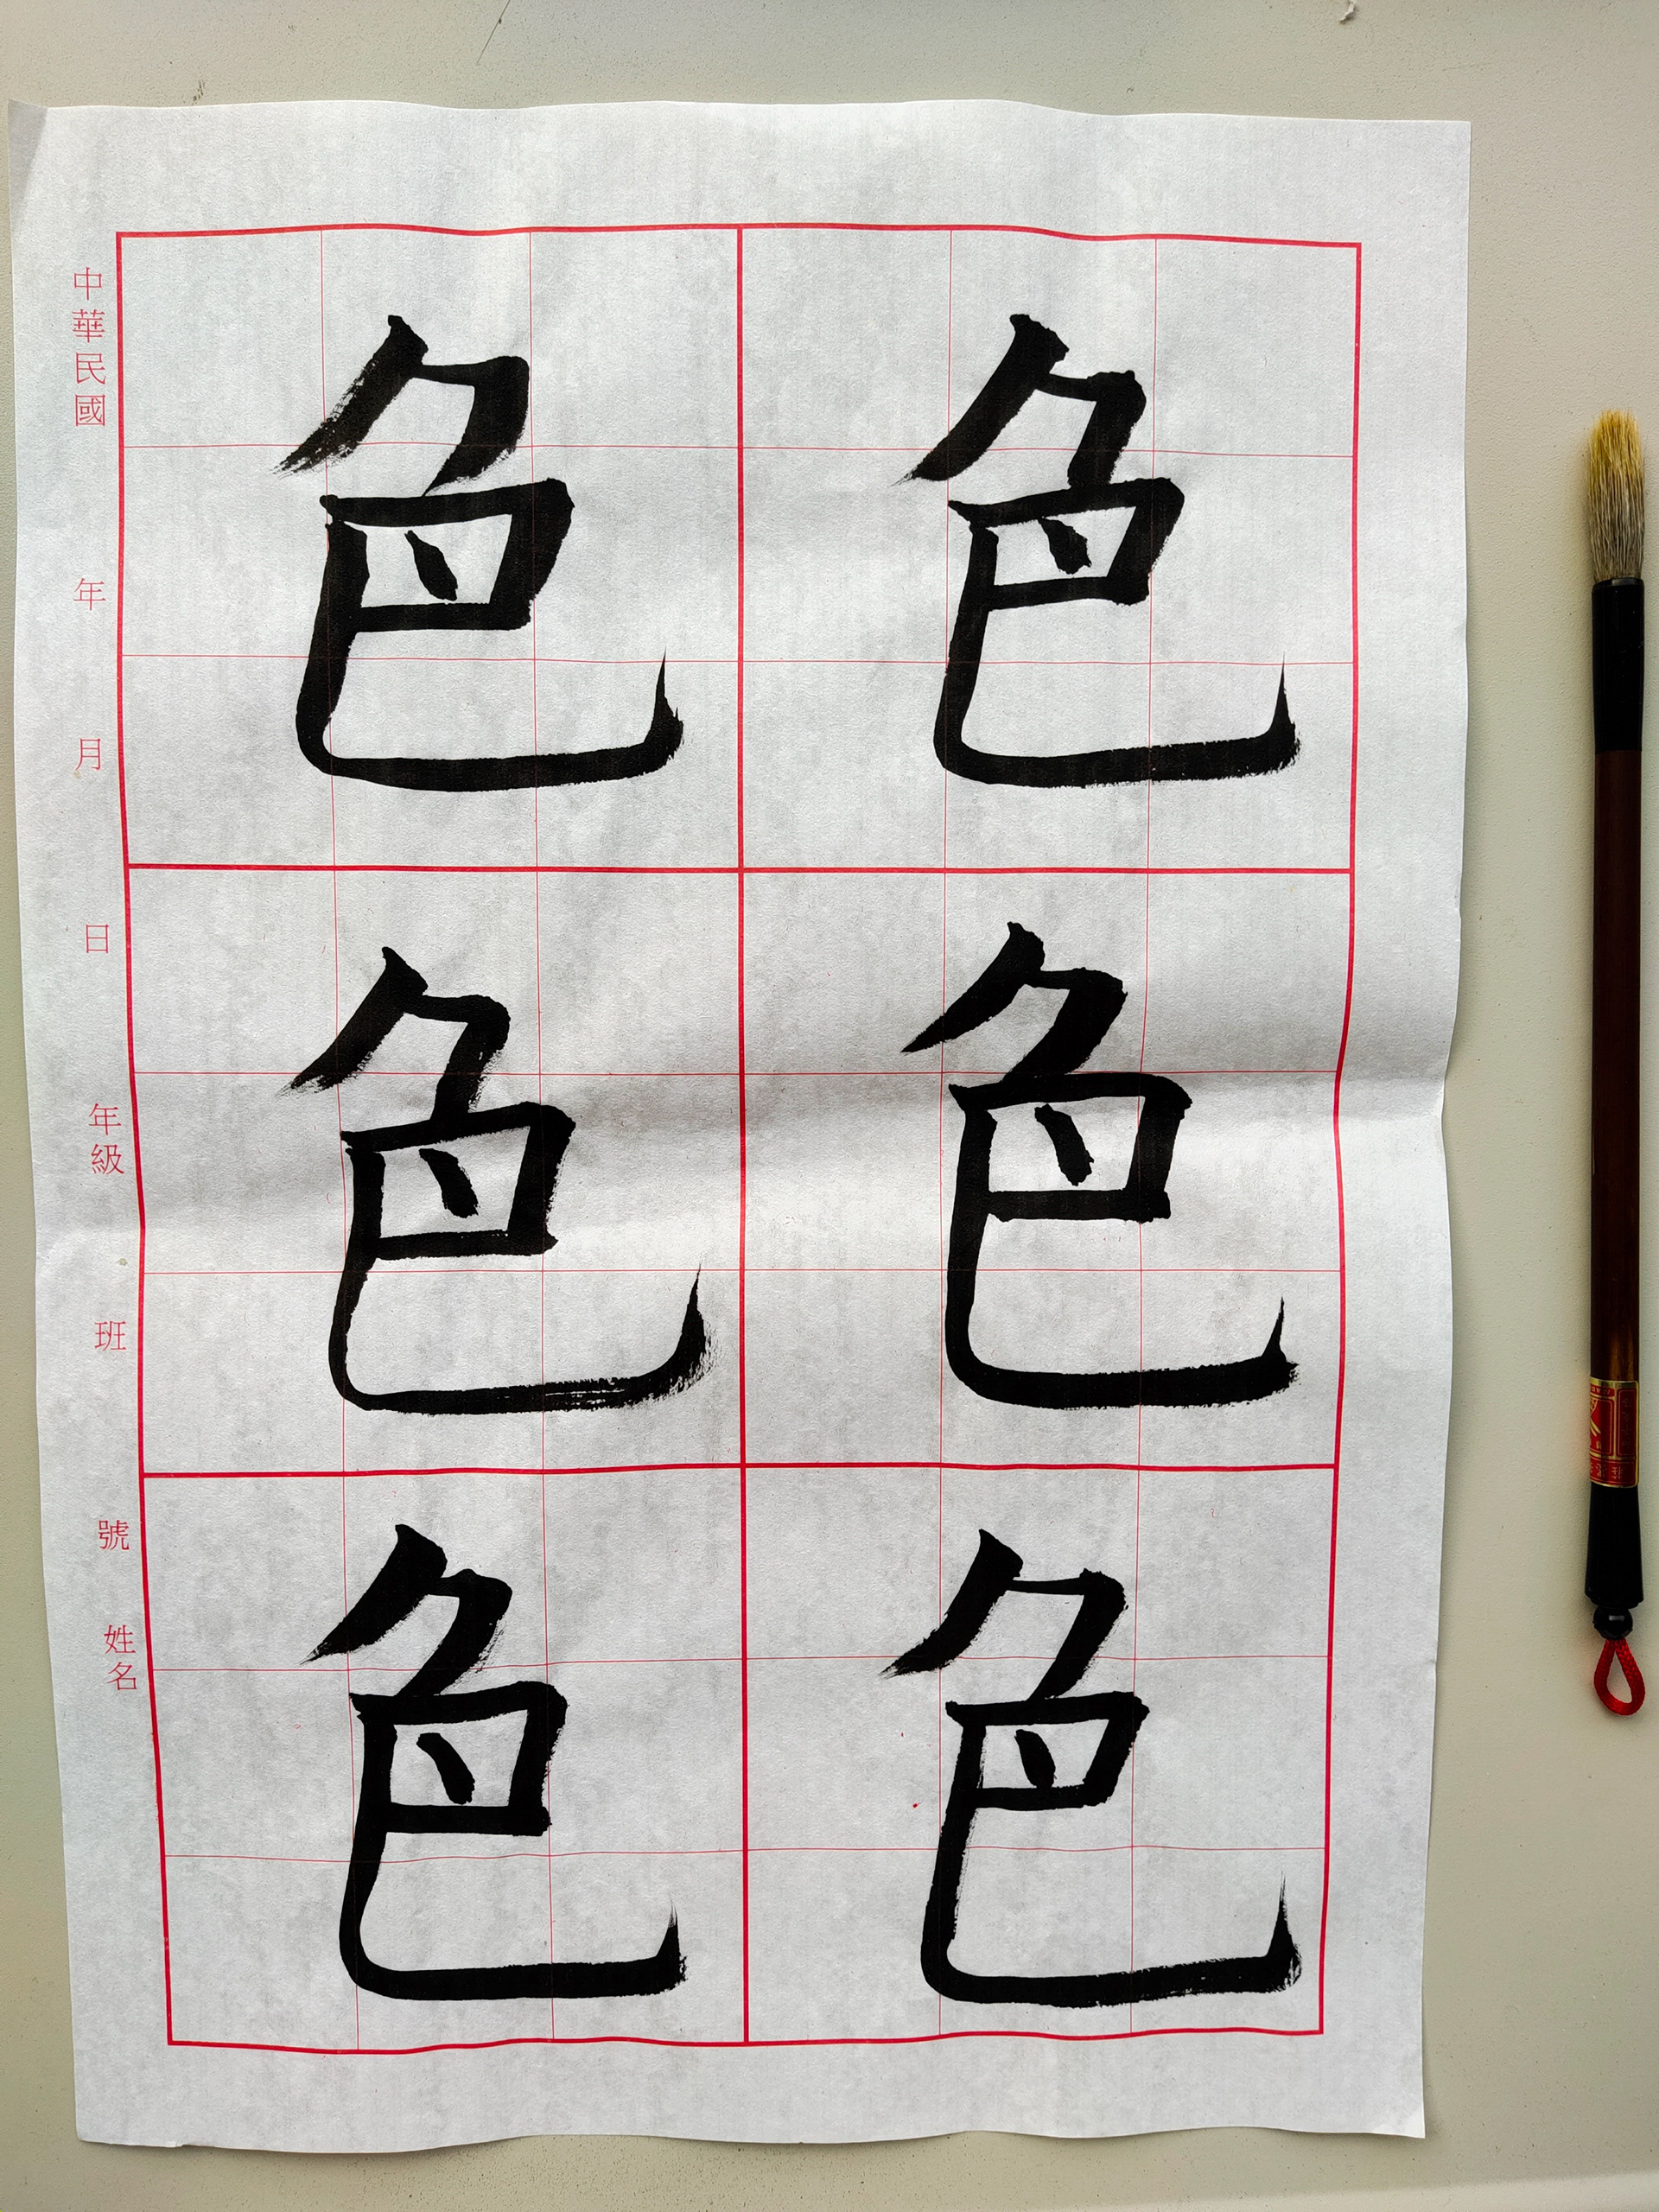 色色
色色
色色
中華民國 年 月 日 年級 班 號 姓名